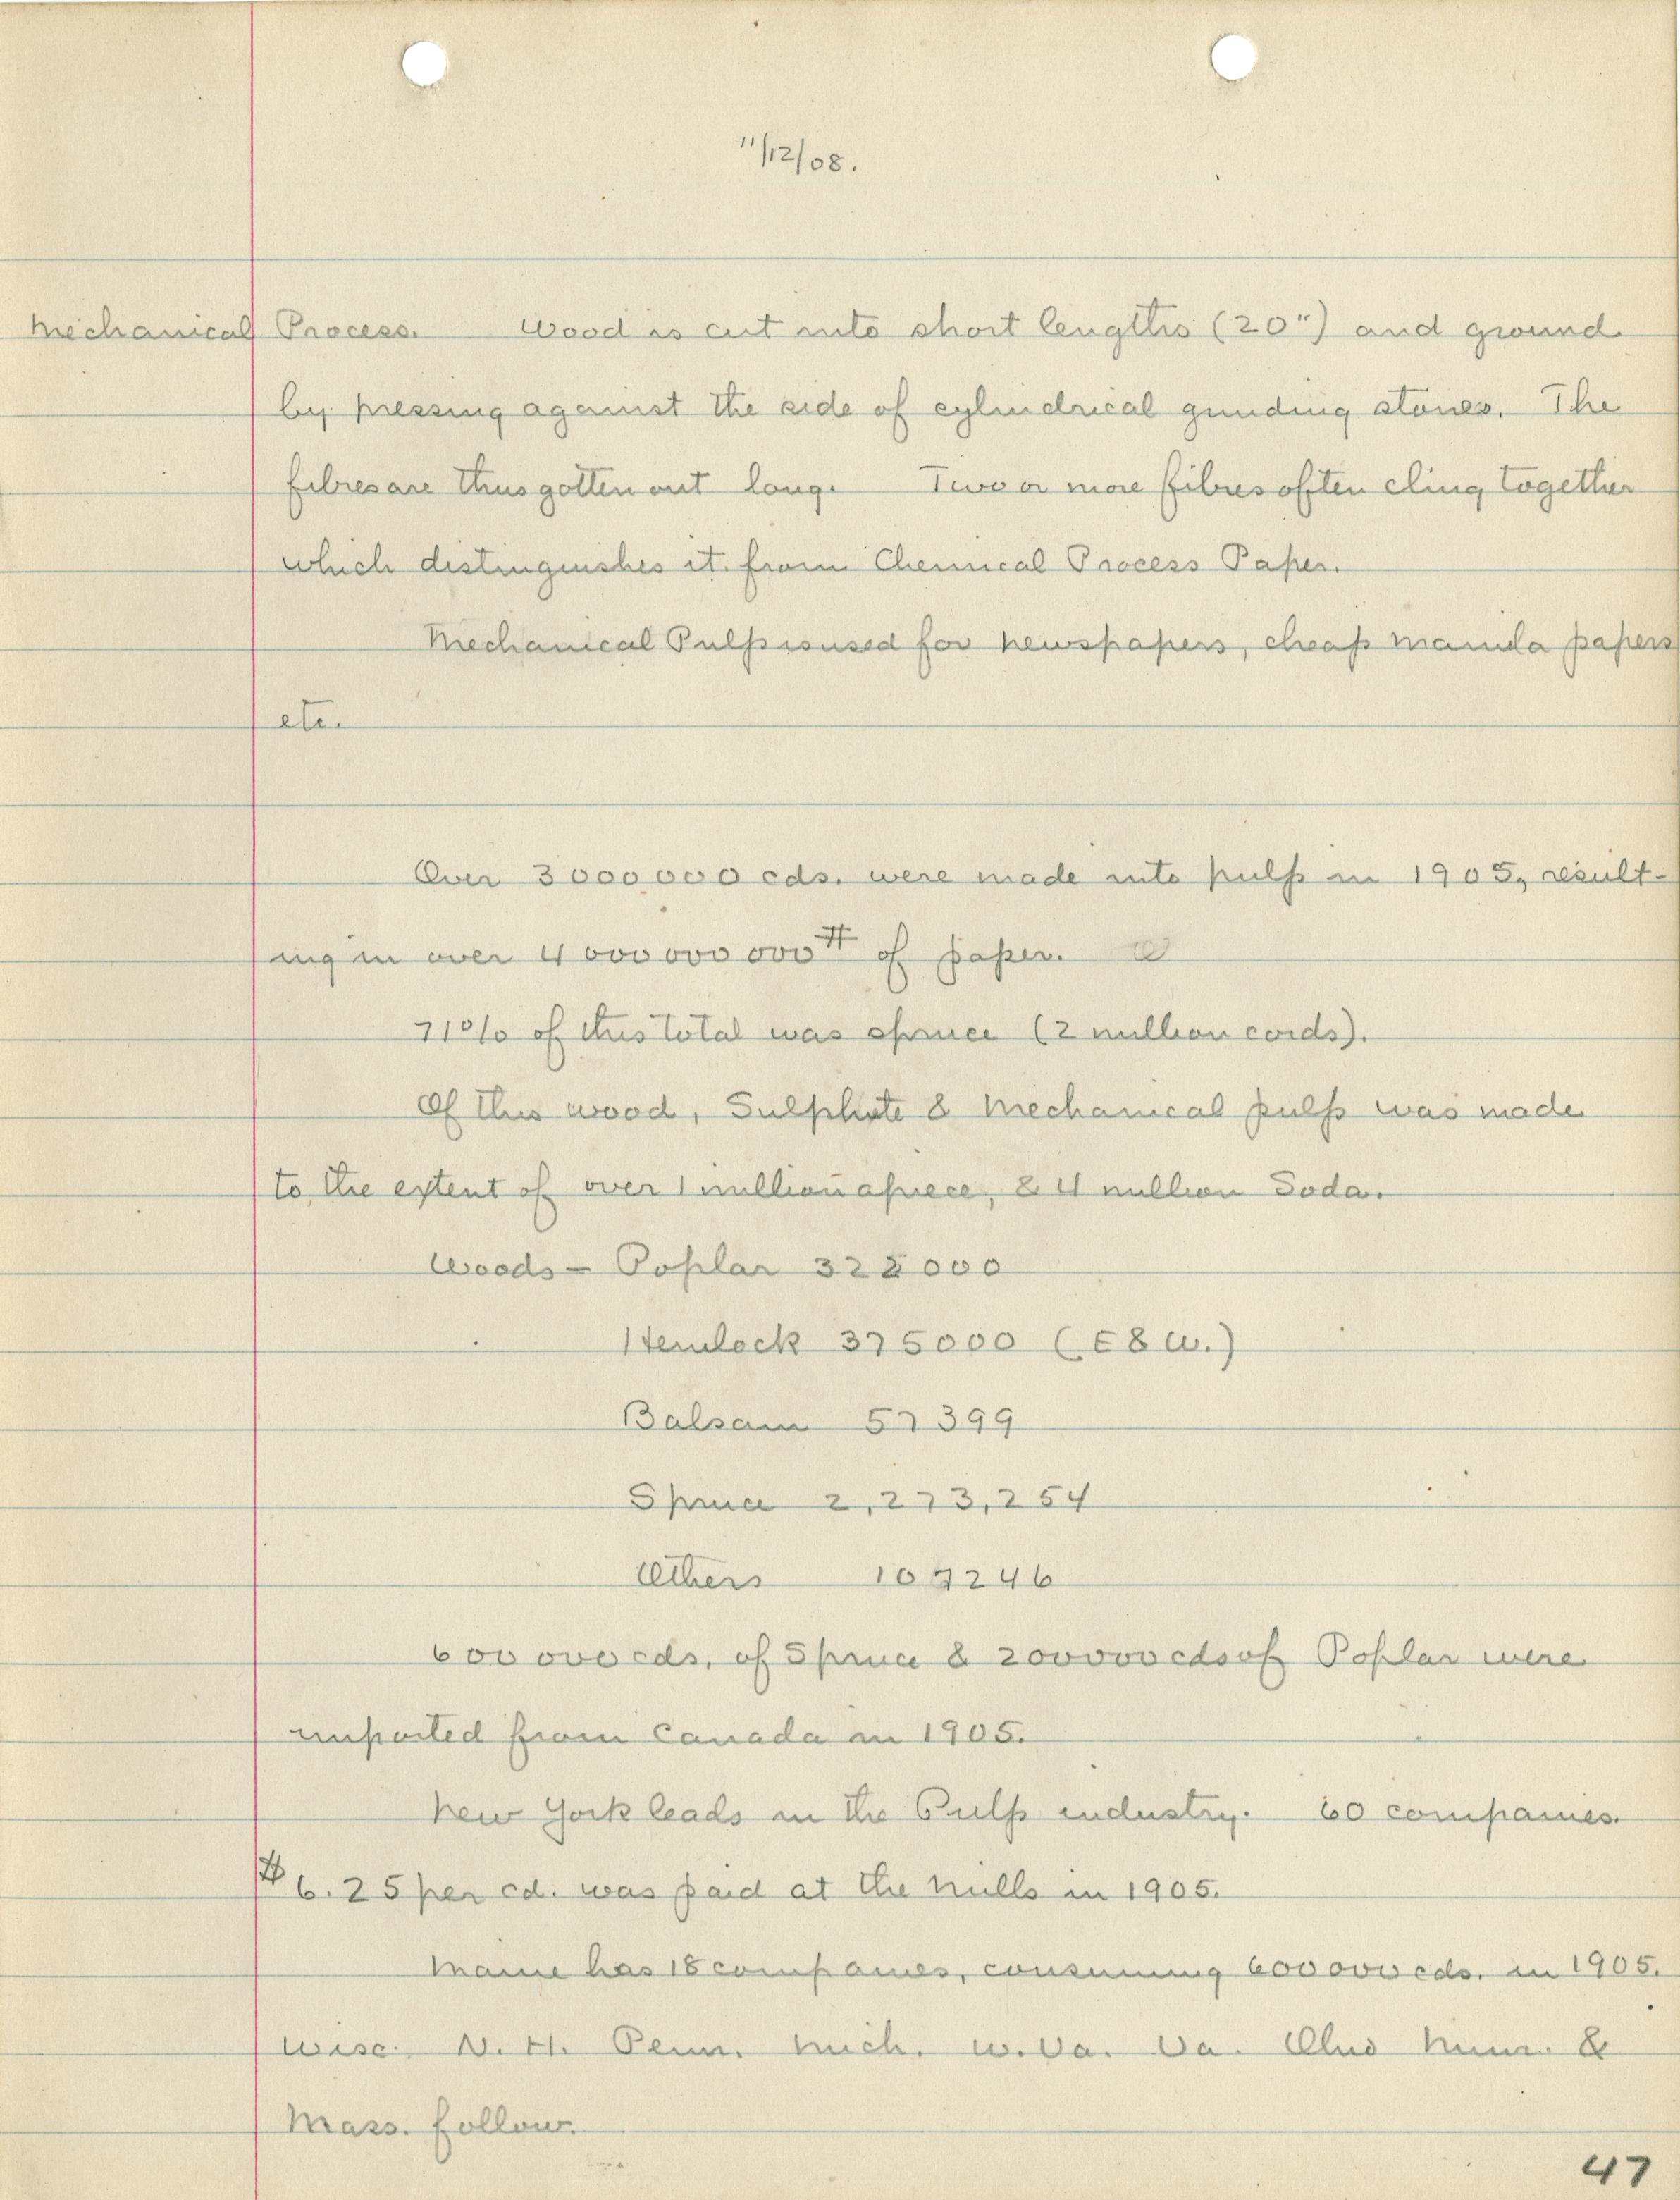 11/12/08.
Mechanical Process. Wood is cut into short lengths (20") and ground
by pressing against the side of cylindrical grinding stones. The
fibres are thus gotten out long. Two or more fibres often cling together
which distinguishes it from Chemical Process Paper.
Mechanical Pulp is used for newspapers, cheap manila papers
etc.
Over 3000000 cds. were made into pulp in 1905, result-
ing in over 4000000000# of paper.
71% of this total was spruce (2 million cords).
Of this wood, Sulphite & Mechanical pulp was made
to the extent of over 1 million apiece, & 4 million Soda.
Woods - Poplar 322000
Hemlock 375000 (E & W.)
Balsam 57399
Spruce 2,273,254
Others 109246
600000 cds. of Spruce & 200000 cds of Poplar were
imported from Canada in 1905.
New York leads in the Pulp industry. 60 companies.
$6.25 per cd. was paid at the mills in 1905.
Maine has 18 companies, consuming 600000 cds. in 1905.
Wisc. N.H. Penn. Mich. W.Va. Va. Ohio Minn. &
Mass. follow.
47